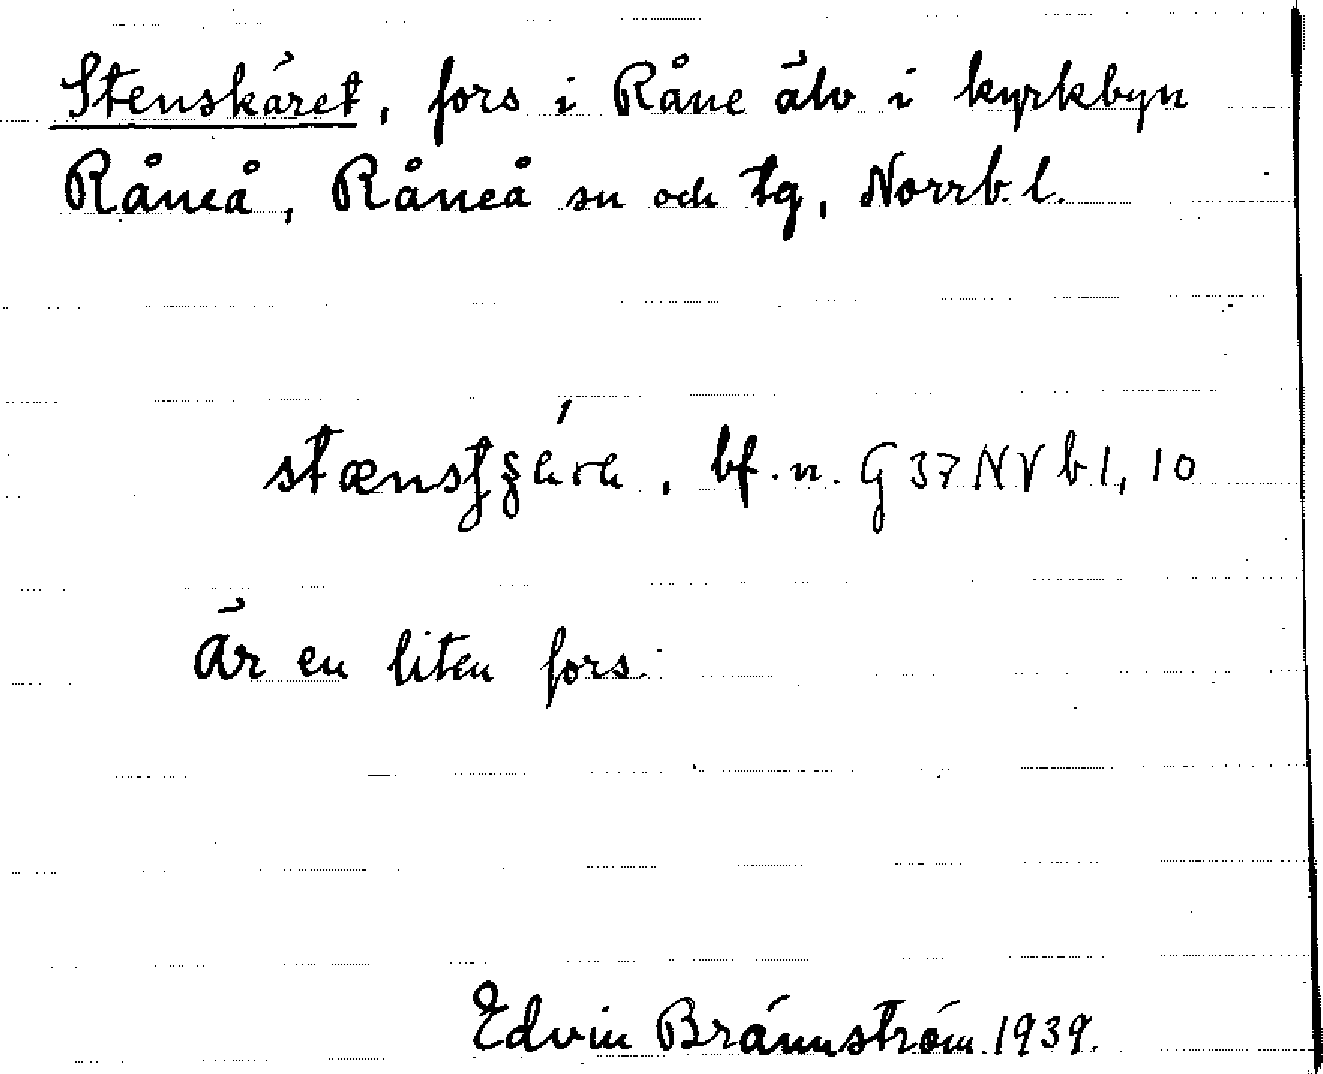 Stenskäret, fors i Råne älv i kyrkbyn
Råneå, Råneå sn och tg, Norrb. l.
bf. n. G 37 N V b 1, 10
Är en liten fors.
Edvin Brännström 1939.